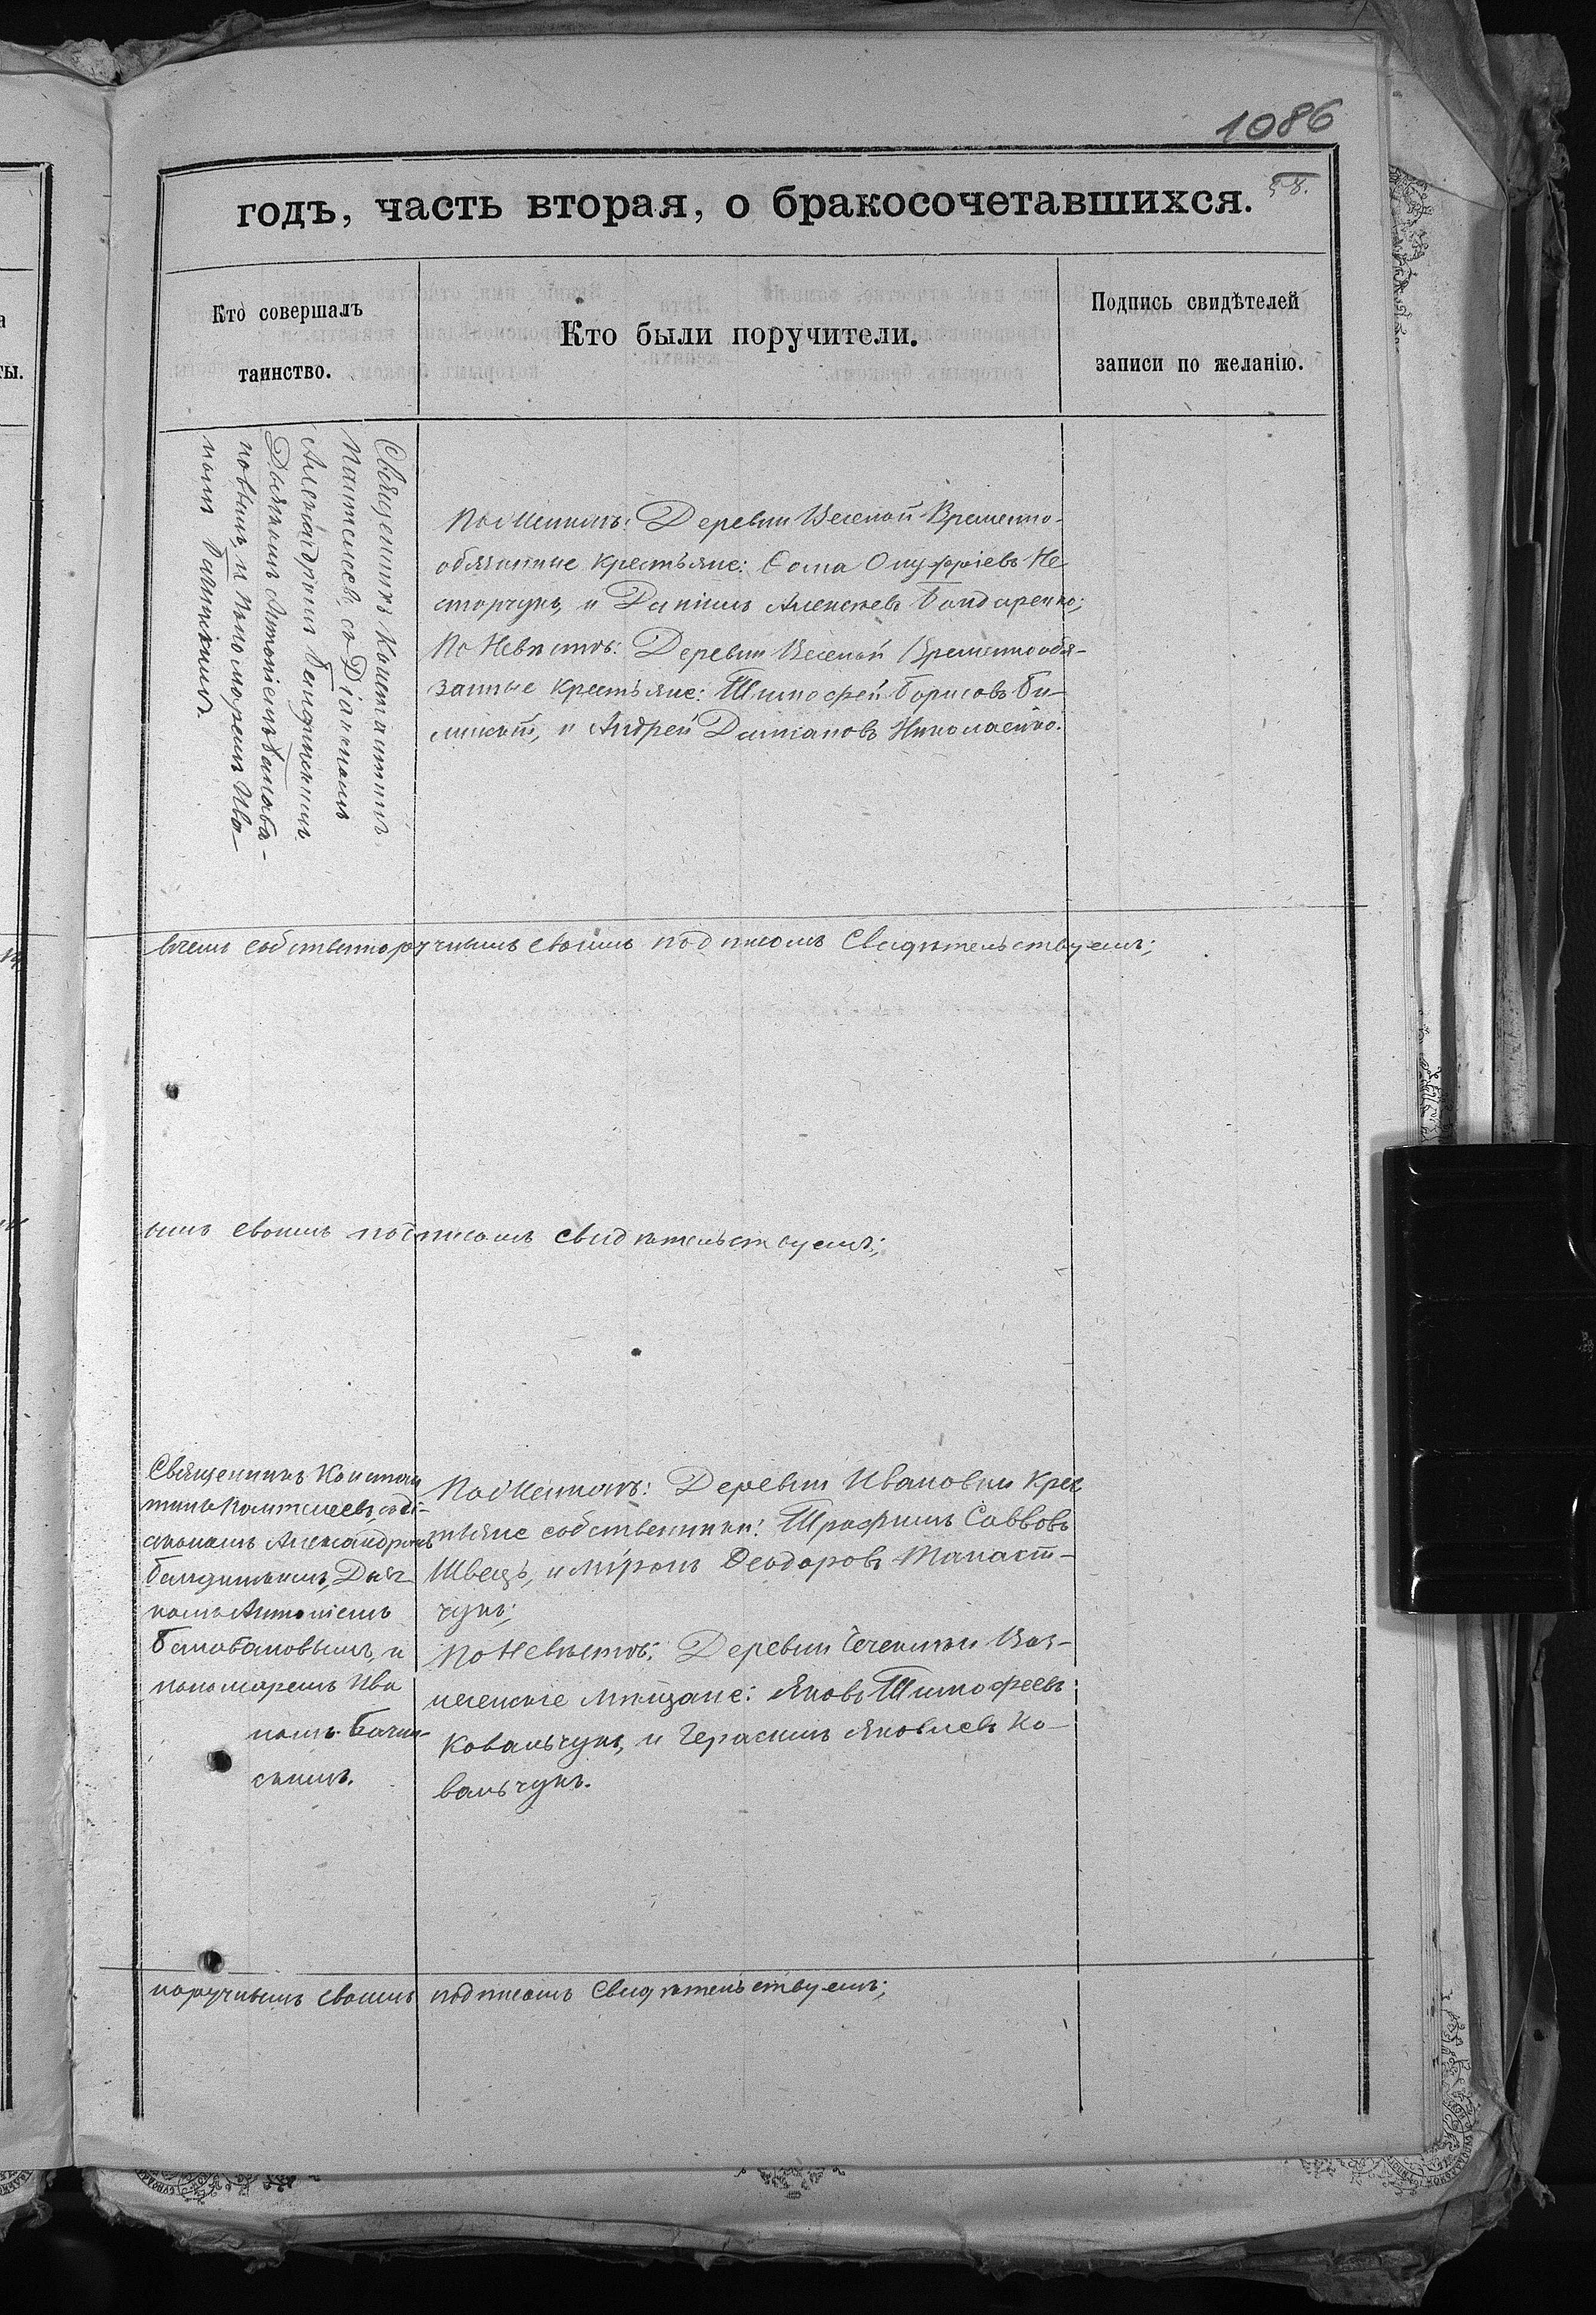 1086
58.
годъ, часть вторая, о бракосочетавшихся.
Кто совершалъ
таинство.
Кто были поручители.
Подпись свидѣтелей
записи по желанію.
Священникъ Константинъ
Пантелеевъ, съ Діакономъ
Александромъ
Дьякомъ Антоніемъ Балаба-
новымъ, и пономаремъ Ива-
номъ
По Женихѣ: Деревни Веселой Временно-
обязанные крестьяне: Ѳома Онуфріевъ Не-
сторчукъ, и Даніилъ Алексѣевъ Бондаренко;
По Невѣстѣ: Деревни Веселой Временнообя-
занные крестьяне: Тимофей Борисовъ
и Андрей Даміановъ Николаенко.
вчемъ собственноручнымъ своимъ подписомъ Свидѣтельствуемъ;
ымъ своимъ подписомъ свидѣтельствуемъ;
Священникъ Констан
тинъ Пантелеевъ, съ ді-
акономъ Александромъ
Дьяч
комъ Антоніемъ
Балабановымъ, и
пономаремъ Ива
номъ
По Женихѣ: Деревни Ивановки Крес
тьяне собственники: Трофимъ Саввовъ
Швецъ, и Міронъ Ѳеодоровъ Танаст-
чукъ;
По Невѣстѣ: Деревни Воз-
несенскіе мѣщане: Яковъ Тимофеевъ
Ковальчукъ, и Герасимъ Яковлевъ Ко-
вальчукъ.
норучнымъ своимъ подписомъ Свидѣтельствуемъ;